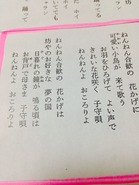 ねんねん合歓の 花かげに
可愛い小鳥が 来て歌う
お羽をひろげて よい声で
きれいな花咲く 子守唄
ねんねんよ おころりよ
ねんねん合歓の 花かげは
坊やのお好きな 夢の国
日暮れの鐘が 鳴る頃は
お背戸で母さま 子守唄
ねんねんよ おころりよ